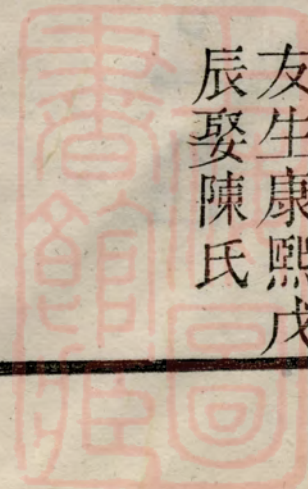 友生康熙戊
辰娶陳氏